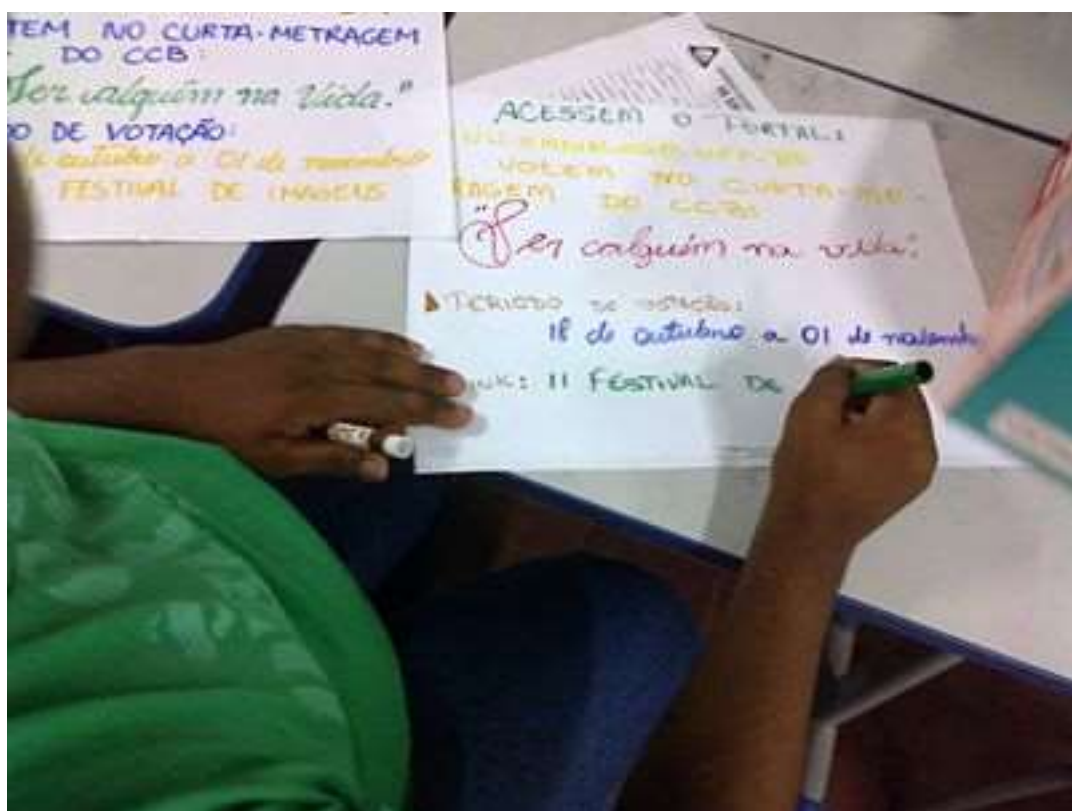 TEM NO CURTA-METRAGEM
DO CCB:
Ser alguém na vida."
O DE VOTAÇÃO:
de outubro a 01 de novembro
FESTIVAL DE IMAGENS
ACESSEM O PORTAL:
VOTEM NO CURTA-ME-
TRAGEM DO CCB:
"Ser alguém na vida".
PERIODO DE VOTAÇÃO:
18 de outubro a 01 de novemb
LINK: II FESTIVAL DE